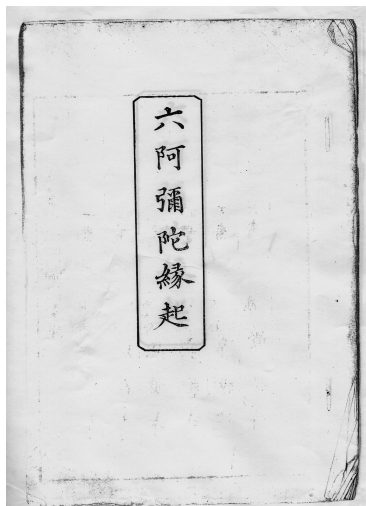 六阿彌陀縁起